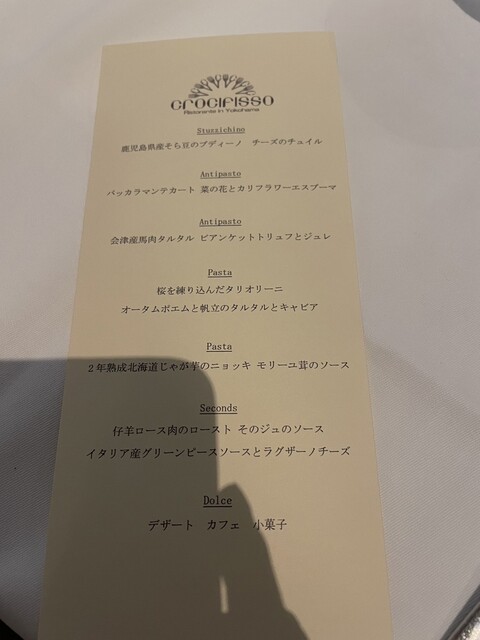 crocifisso
Ristorante in Yokohama
Stuzzichino
鹿児島県産そら豆のブディーノ チーズのチュイル
Antipasto
バッカラマンテカート 菜の花とカリフラワーエスプーマ
Antipasto
会津産馬肉タルタル ビアンケットトリュフとジュレ
Pasta
桜を練り込んだタリオリーニ
オータムポエムと帆立のタルタルとキャビア
Pasta
２年熟成北海道じゃが芋のニョッキ モリーユ茸のソース
Seconds
仔羊ロース肉のロースト そのジュのソース
イタリア産グリーンピースソースとラグザーノチーズ
Dolce
デザート カフェ 小菓子